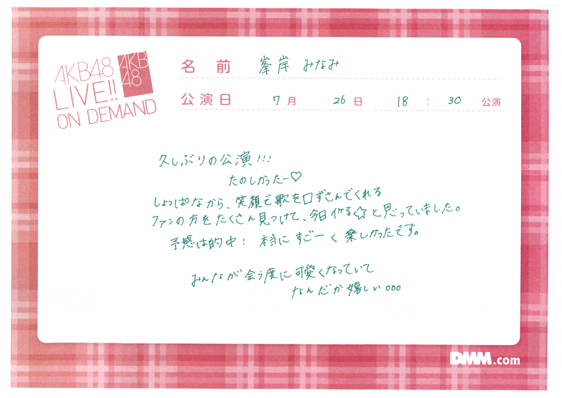 AKB48
LIVE!!
ON DEMAND
AKB
48
名 前 峯岸 みなみ
公演日 7月 26日 18:30 公演
久しぶりの公演!!!
たのしかったー♡
しょっぱなから、笑顔で歌を口ずさんでくれる
ファンの方をたくさん見つけて、今日イケる☆と思っていました。
予感は的中! 本当にすごーく楽しかったです。
みんなが会う度に可愛くなっていて
なんだか嬉しい。。。
DMM.com